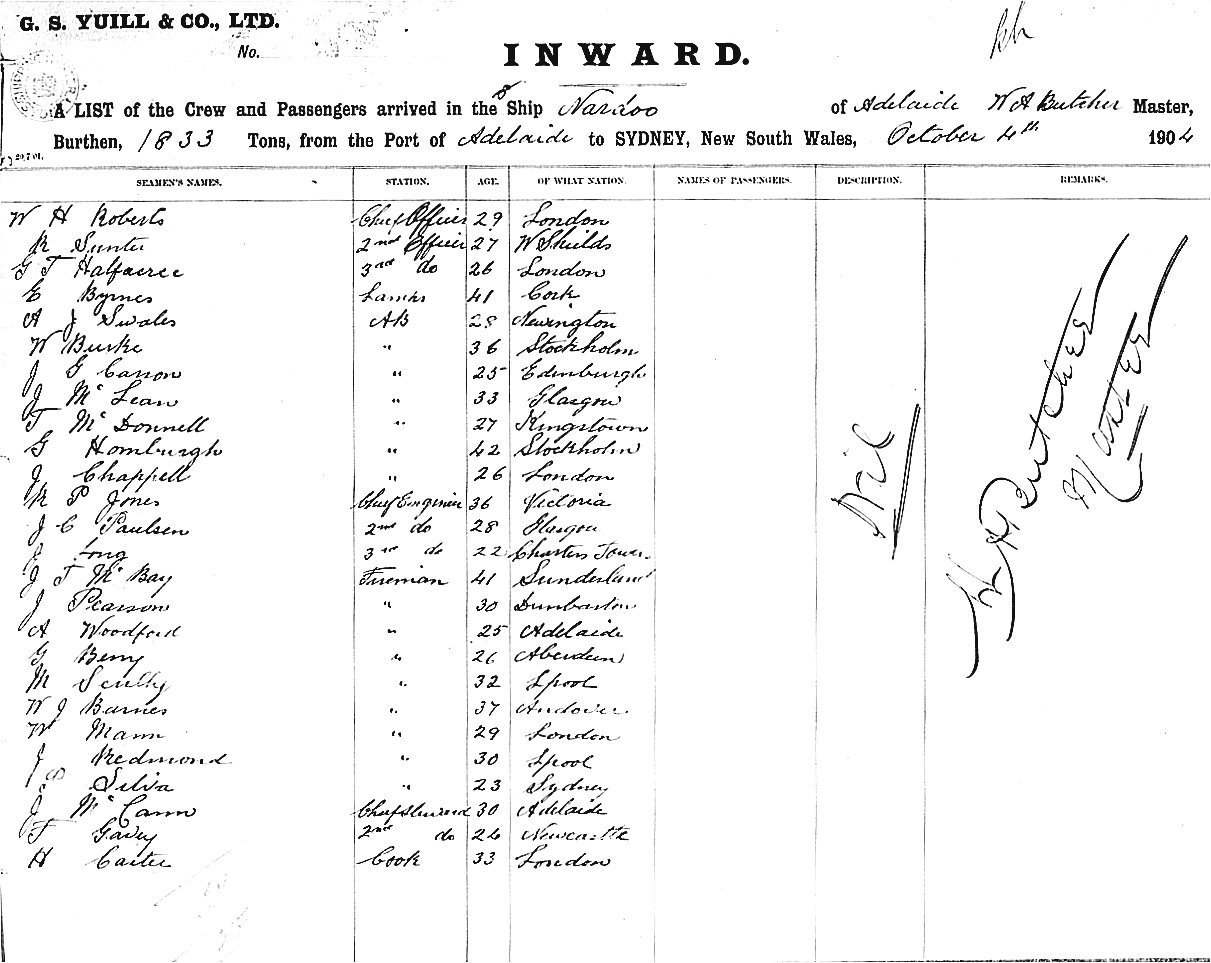 G. S. YUILL & CO., LTD.
No.
INWARD.
A LIST of the Crew and Passengers arrived in the S Ship Nardoo of Adelaide W A Butcher Master,
Burthen, 1833 Tons, from the Port of Adelaide to SYDNEY, New South Wales, October 4th 1904
SEAMEN'S NAMES. STATION. AGE. OF WHAT NATION. NAMES OF PASSENGERS. DESCRIPTION. REMARKS.
W H Roberts Chief Officer 29 London
R Sunter 2nd Officer 27 W Shields
G T Halfacree 3rd do 26 London
E Byrnes Lamps 41 Cork
A J Swales AB 28 Newington
W Burke " 36 Stockholm
J G Carson " 25 Edinburgh
J McLean " 33 Glasgow
T McDonnell " 27 Kingstown
G Homburgh " 42 Stockholm
J Chappell " 26 London
R P Jones Chief Engineer 36 Victoria
J C Paulsen 2nd do 28 Glasgow
Long 3rd do 22 Charters Tower
J T McBay Fireman 41 Sunderland
J Pearson " 30 Dunbarton
A Woodford " 25 Adelaide
G Berry " 26 Aberdeen
M Scully " 32 Lpool
W J Barnes " 37 Andover
W Mann " 29 London
J Redmond " 30 Lpool
S Silva " 23 Sydney
J McCann Chief Steward 30 Adelaide
T Gavey 2nd do 26 Newcastle
H Carter Cook 33 London
Nil
W A Butcher
Master